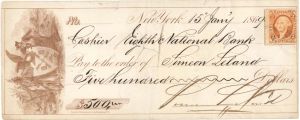 No. New York 15 Jany 1869
Cashier Eighth National Bank
Pay to the order of Simeon Leland
Five hundred Dollars
$500